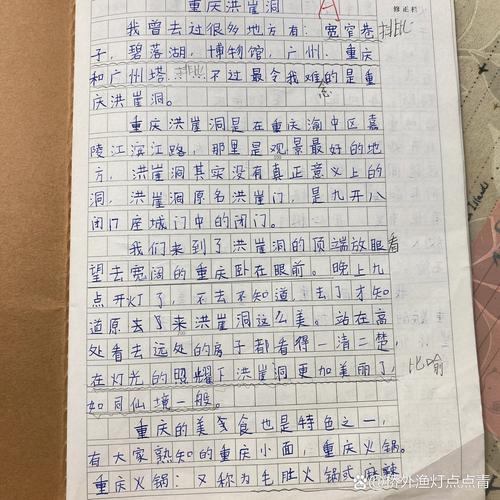 重庆洪崖洞
A
修正栏
我曾去过很多地方有：宽窄巷 排比
子，碧落湖，博物馆，广州、重庆
和广州塔。排比 不过最令我难的是重
忘
庆洪崖洞。
重庆洪崖洞是在重庆渝中区嘉
陵江滨江路，那里是观景最好的地
方，洪崖洞其实没有真正意义上的
洞，洪崖洞原名洪崖门，是九开八
闭17座城门中的闭门。
我们来到了洪崖洞的顶端放眼看
望去宽阔的重庆卧在眼前。晚上九
点开灯了，不去不知道，去了才知
道原去了来洪崖洞这么美。站在高
处看去远处的房子都看得一清二楚，
在灯光的照耀下洪崖洞更加美丽了， 比喻
如同仙境一般。
重庆的美食也是特色之一，
有大家熟知的重庆小面，重庆火锅。
重庆火锅：又称为毛肚火锅或麻辣
@桥外渔灯点点青